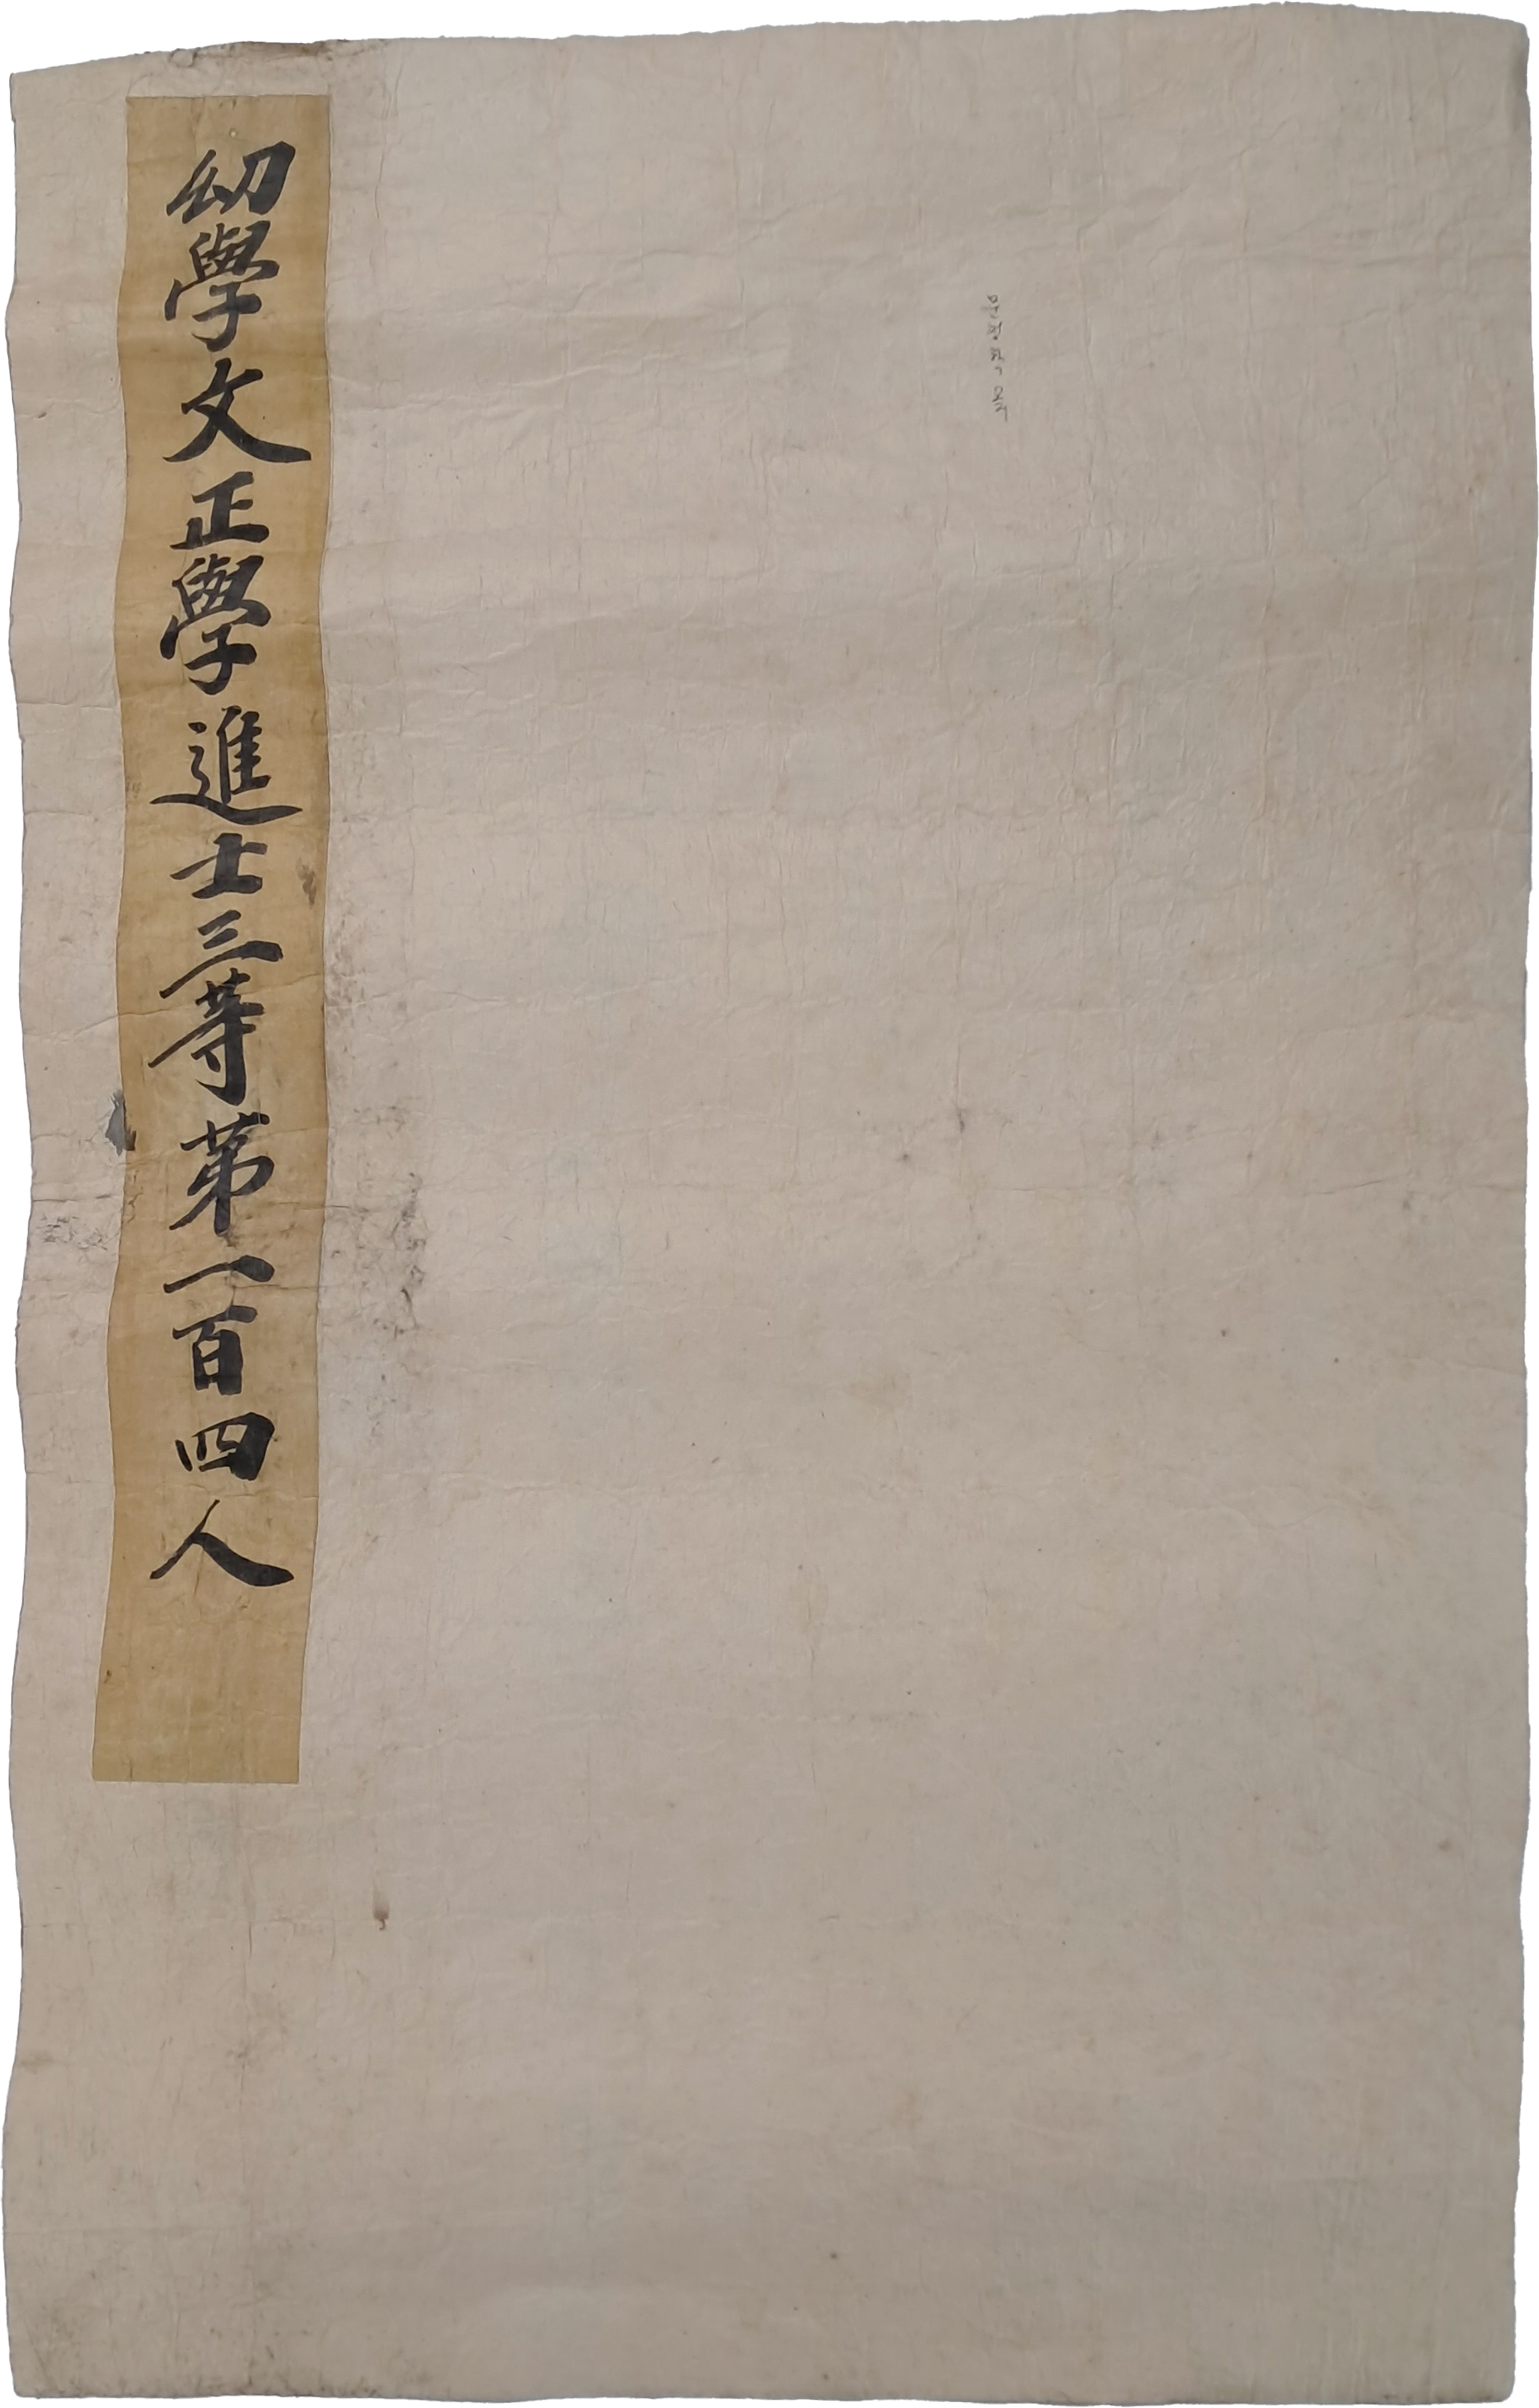 幼學文正學進士三等第一百四人